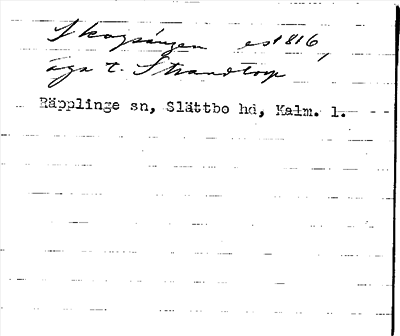 Skogsängen es 1816,
äga t. Strandtorp
Räpplinge sn, Slättbo hd, Kalm. l.